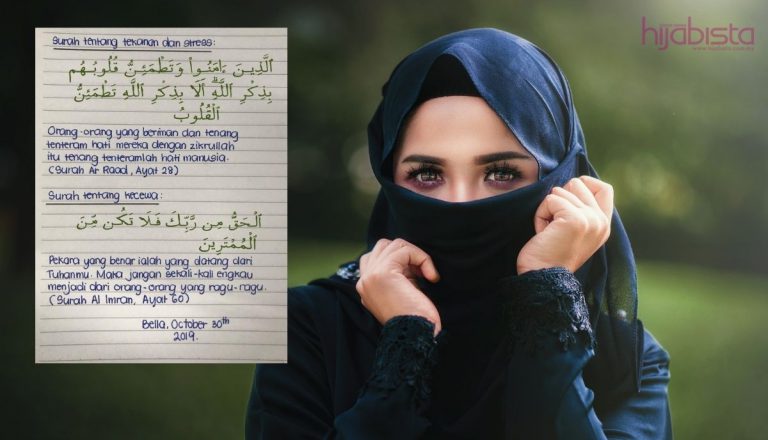 Surah tentang tekanan dan stress:
ٱلَّذِينَ ءَامَنُوا۟ وَتَطْمَئِنُّ قُلُوبُهُم
بِذِكْرِ ٱللَّهِ ۗ أَلَا بِذِكْرِ ٱللَّهِ تَطْمَئِنُّ
ٱلْقُلُوبُ
Orang-orang yang beriman dan tenang
tenteram hati mereka dengan zikrullah
itu tenang tenteramlah hati manusia.
(Surah Ar Raad, Ayat 28)
Surah tentang kecewa:
ٱلْحَقُّ مِن رَّبِّكَ فَلَا تَكُن مِّنَ
ٱلْمُمْتَرِينَ
Perkara yang benar ialah yang datang dari
Tuhanmu. Maka jangan sekali-kali engkau
menjadi dari orang-orang yang ragu-ragu.
(Surah Al Imran, Ayat 60)
Bella, October 30th
2019.
hijabista